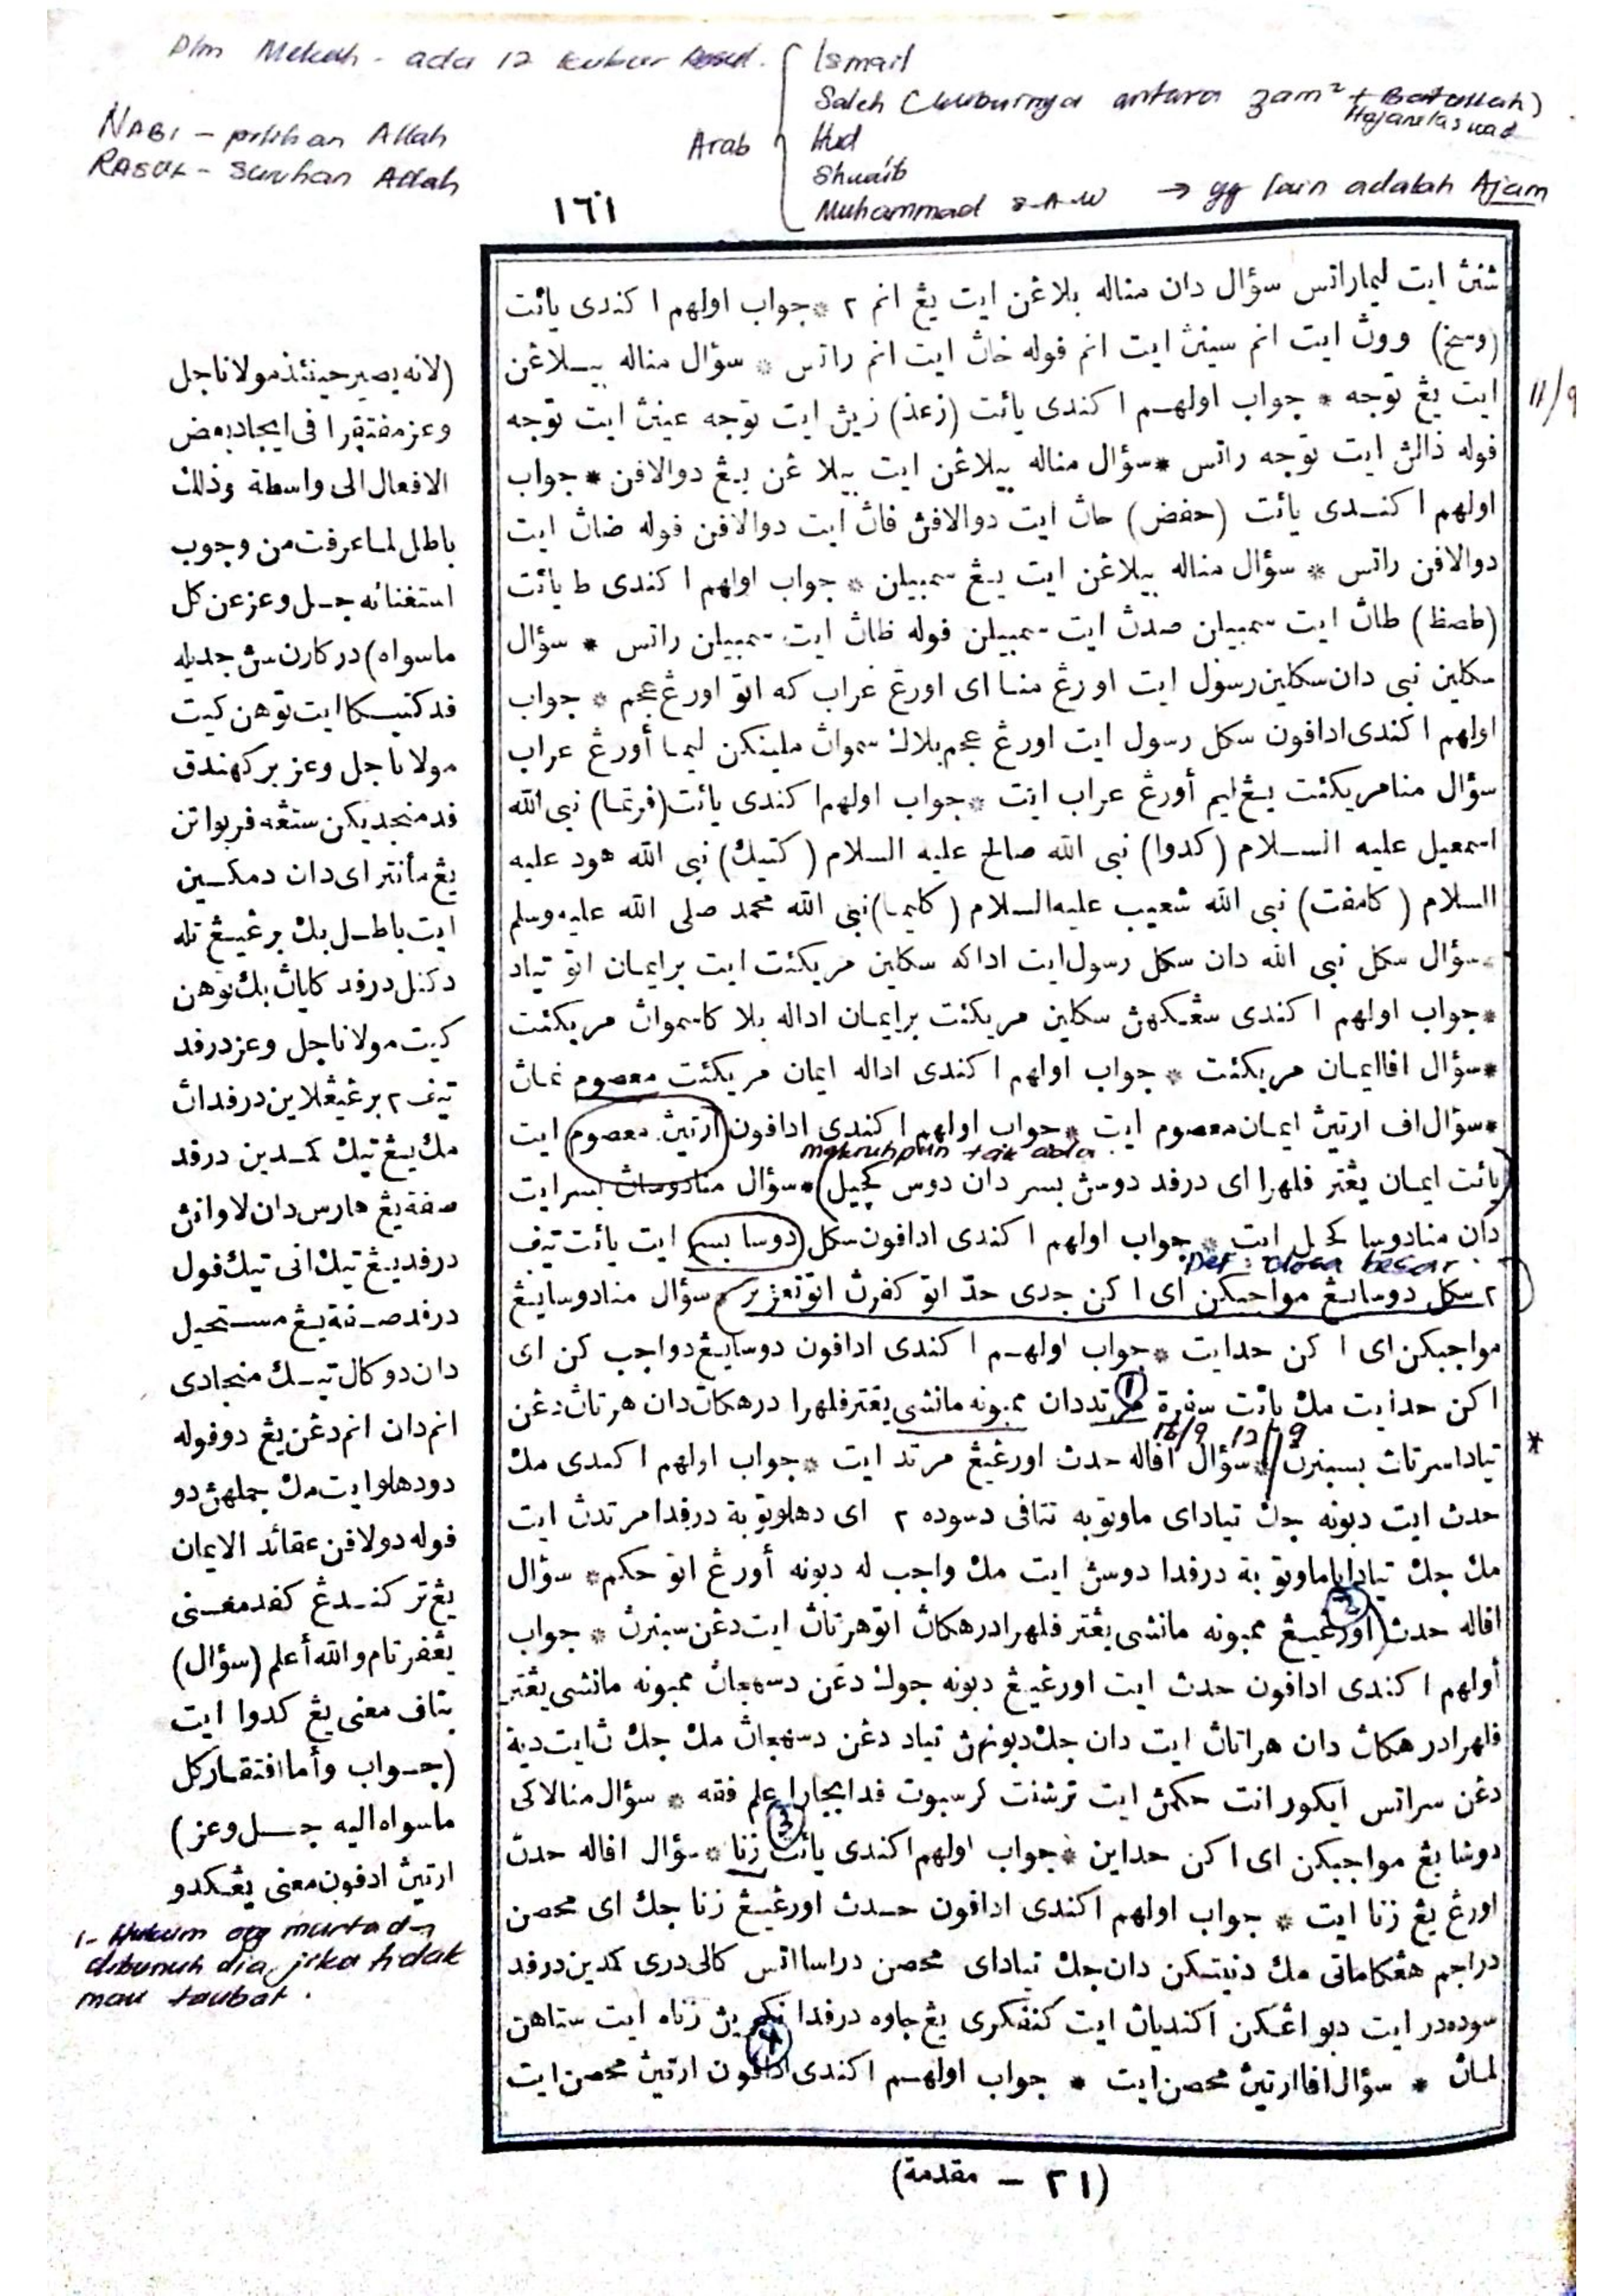 Dlm Mekah - ada 12 kubur Rasul.
NABI - pilihan Allah
RASUL - suruhan Allah
Arab
Ismail
Saleh (kuburnya antara zam² + Baitullah)
Hajarulaswad
Hud
Shuaib
Muhammad S.A.W → yg lain adalah Ajam
١٦١
ثنڽ ايت ليماراتس سؤال دان مناله بلاغن ايت يڠ انم ٢ * جواب اولهم ا كندى يائت
(وسخ) ووڽ ايت انم سينڽ ايت انم فوله خاڽ ايت انم راتس * سؤال مناله بيلاغن
ايت يڠ توجه * جواب اولهم ا كندى يائت (زعذ) زيڽ ايت توجه عينڽ ايت توجه
فوله ذالڽ ايت توجه راتس * سؤال مناله بيلاغن ايت بيلاغن يڠ دوالافن * جواب
اولهم ا كندى يائت (حفض) حاڽ ايت دوالافن فاڽ ايت دوالافن فوله ضاڽ ايت
دوالافن راتس * سؤال مناله بيلاغن ايت يڠ سمبيلن * جواب اولهم ا كندى ط يائت
(طصظ) طاڽ ايت سمبيلن صدڽ ايت سمبيلن فوله ظاڽ ايت سمبيلن راتس * سؤال
سكلين نبى دان سكلين رسول ايت اورڠ منااى اورڠ عراب كه اتو اورڠ عجم * جواب
اولهم ا كندى ادافون سكل رسول ايت اورڠ عجم بلاك سمواڽ ملينكن ليما أورڠ عراب
سؤال منامريكئت يڠ ليم أورڠ عراب ايت * جواب اولهم ا كندى يائت (فرتما) نبى الله
اسمعيل عليه السلام (كدوا) نبى الله صالح عليه السلام (كتيك) نبى الله هود عليه
السلام (كامفت) نبى الله شعيب عليه السلام (كليما) نبى الله محمد صلى الله عليه وسلم
* سؤال سكل نبى الله دان سكل رسول ايت اداكه سكلين مريكئت ايت برايمان اتو تياد
* جواب اولهم ا كندى سڠكهڽ سكلين مريكئت برايمان اداله بلا كاسمواڽ مريكئت
* سؤال افاايمان مريكئت * جواب اولهم ا كندى اداله ايمان مريكئت معصوم نماڽ
* سؤال اف ارتيڽ ايمان معصوم ايت * جواب اولهم ا كندى ادافون ارتيڽ معصوم ايت
makruhpun tak ada.
يائت ايمان يڠتر فلهرا اى درفد دوسڽ بسر دان دوس كچيل * سؤال منادوساڽ بسرايت
دان منادوسا كچيل ايت * جواب اولهم ا كندى ادافون سكل دوسا بسر ايت يائت تيف
Def: dosa besar.
٢ سكل دوسايڠ مواجبكن اى ا كن جدى حد اتو كفرڽ اتو تعزير * سؤال منادوسايڠ
مواجبكن اى ا كن حدايت * جواب اولهم ا كندى ادافون دوسايڠ دواجب كن اى
ا كن حدايت مك يائت سفرة مرتددان ممبونه مانشى يڠترفلهرا درهكاڽ دان هرتاڽ دغن
① 16/9 12/9
تياداسرتاڽ بسبنرڽ * سؤال افاله حدڽ اورڠيڠ مرتد ايت * جواب اولهم ا كندى مك
حدڽ ايت دبونه جك تياداى ماوتوبه تتافى دسوده ٢ اى دهلوتوبة درفدا مرتدڽ ايت
مك جك تيادايماوتوبة درفدا دوسڽ ايت مك واجب له دبونه أورڠ اتو حكم * سؤال
②
افاله حدڽ اورڠيڠ ممبونه مانشى يڠتر فلهرادرهكاڽ اتوهرتاڽ ايت دغن سبنرڽ * جواب
أولهم ا كندى ادافون حدڽ ايت اورڠيڠ دبونه جوك دغن دسهجاڽ ممبونه مانشى يڠتر
فلهرادرهكاڽ دان هراتاڽ ايت دان جك دبونهڽ تياد دغن دسهجاڽ مك جك ڽايت دية
دغن سراتس ايكورانت حكمڽ ايت ترسنت ترسبوت فدابچارا علم فقه * سؤال منالاكى
③
دوشايڠ مواجبكن اى ا كن حداين * جواب اولهم ا كندى يائت زنا * سؤال افاله حدڽ
اورڠ يڠ زنا ايت * جواب اولهم ا كندى ادافون حدڽ اورڠيڠ زنا جك اى محصن
دراجم هڠكاماتى مك دنيتكن دان جك تياداى محصن دراسااتس كالى درى كمدين درفد
سوده در ايت دبواڠكن اكنديان ايت كنڤكرى يڠ جاوه درفدا نڬرين زناه ايت ستاهن
④
لماڽ * سؤال افاارتيڽ محصن ايت * جواب اولهم ا كندى ادافون ارتيڽ محصن ايت
11/9
*
(لانه يصير حينئذ مولاناجل
وعز مفتقرا فى ايجاد بعض
الافعال الى واسطة وذلك
باطل لما عرفت من وجوب
استغنائه جل وعز عن كل
ماسواه) دركارن سڽ جديله
فدكتيكاايت توهن كيت
مولاناجل وعز بركهندق
فد منجديكن ستڠه فربواتن
يڠ مأنتراى دان دمكين
ايت باطل بك برڠيڠ تله
دكنل درفد كاياڽ بك توهن
كيت مولاناجل وعز درفد
تيف ٢ برڠيڠلاين درفداڽ
مك يڠ تيك كمدين درفد
صفة يڠ هارس دان لاوانڽ
درفد يڠ تيك انى تيك فول
درفد صفة يڠ مستحيل
دان دوكال تيك منجادى
انم دان انم دغن يڠ دوفوله
دودهلوايت مك جملهڽ دو
فوله دولافن عقائد الايمان
يڠ تركندڠ كفد معنى
يڠفرتام والله أعلم (سؤال)
بتاف معنى يڠ كدوا ايت
(جواب وأما افتقار كل
ماسواه اليه جل وعز)
ارتيڽ ادفون معنى يڠكدو
1- Hukum org murtad →
dibunuh dia, jika tidak
mau taubat.
(٢١ - مقدمة)